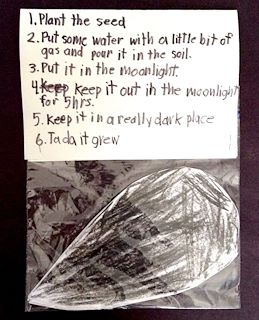 1. Plant the seed
2. Put some water with a little bit of
gas and pour it in the soil.
3. Put it in the moonlight.
4. keep keep it out in the moonlight
for 5hrs.
5. Keep it in a really dark place
6. Tada it grew